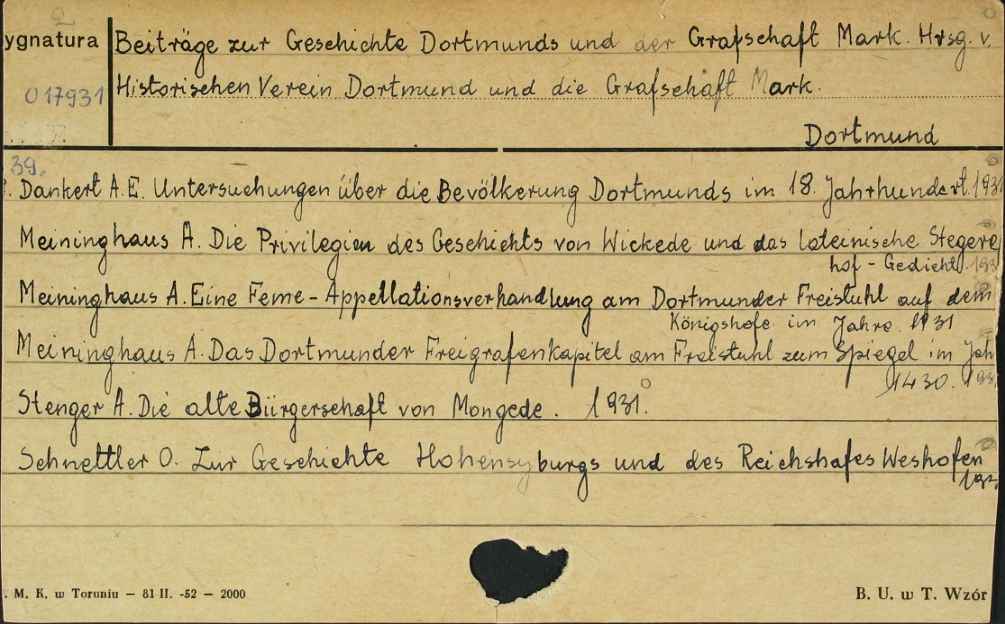 ygnatura Beiträge zur Geschichte Dortmunds und der Grafschaft Mark. Hrsg. v.
017931 Historischen Verein Dortmund und die Grafschaft Mark.
Dortmund
39.
Dankert A.E. Untersuchungen über die Bevölkerung Dortmunds im 18. Jahrhundert. 193
Meininghaus A. Die Privilegien des Geschichts von Wickede und das lateinische Stegere
hof - Gedicht. 193
Meininghaus A. Eine Feme - Appellationsverhandlung am Dortmunder Freistuhl auf dem
Königshofe im Jahre. 1931
Meininghaus A. Das Dortmunder Freigrafenkapitel am Freistuhl zum Spiegel im Jah
1430. 193
Stenger A. Die alte Bürgerschaft von Mengede. 1931.
Schnettler O. Zur Geschichte Hohensyburgs und des Reichshafes Weshofen
193
. M. K. w Toruniu — 81 II. -52 — 2000
B. U. w T. Wzór